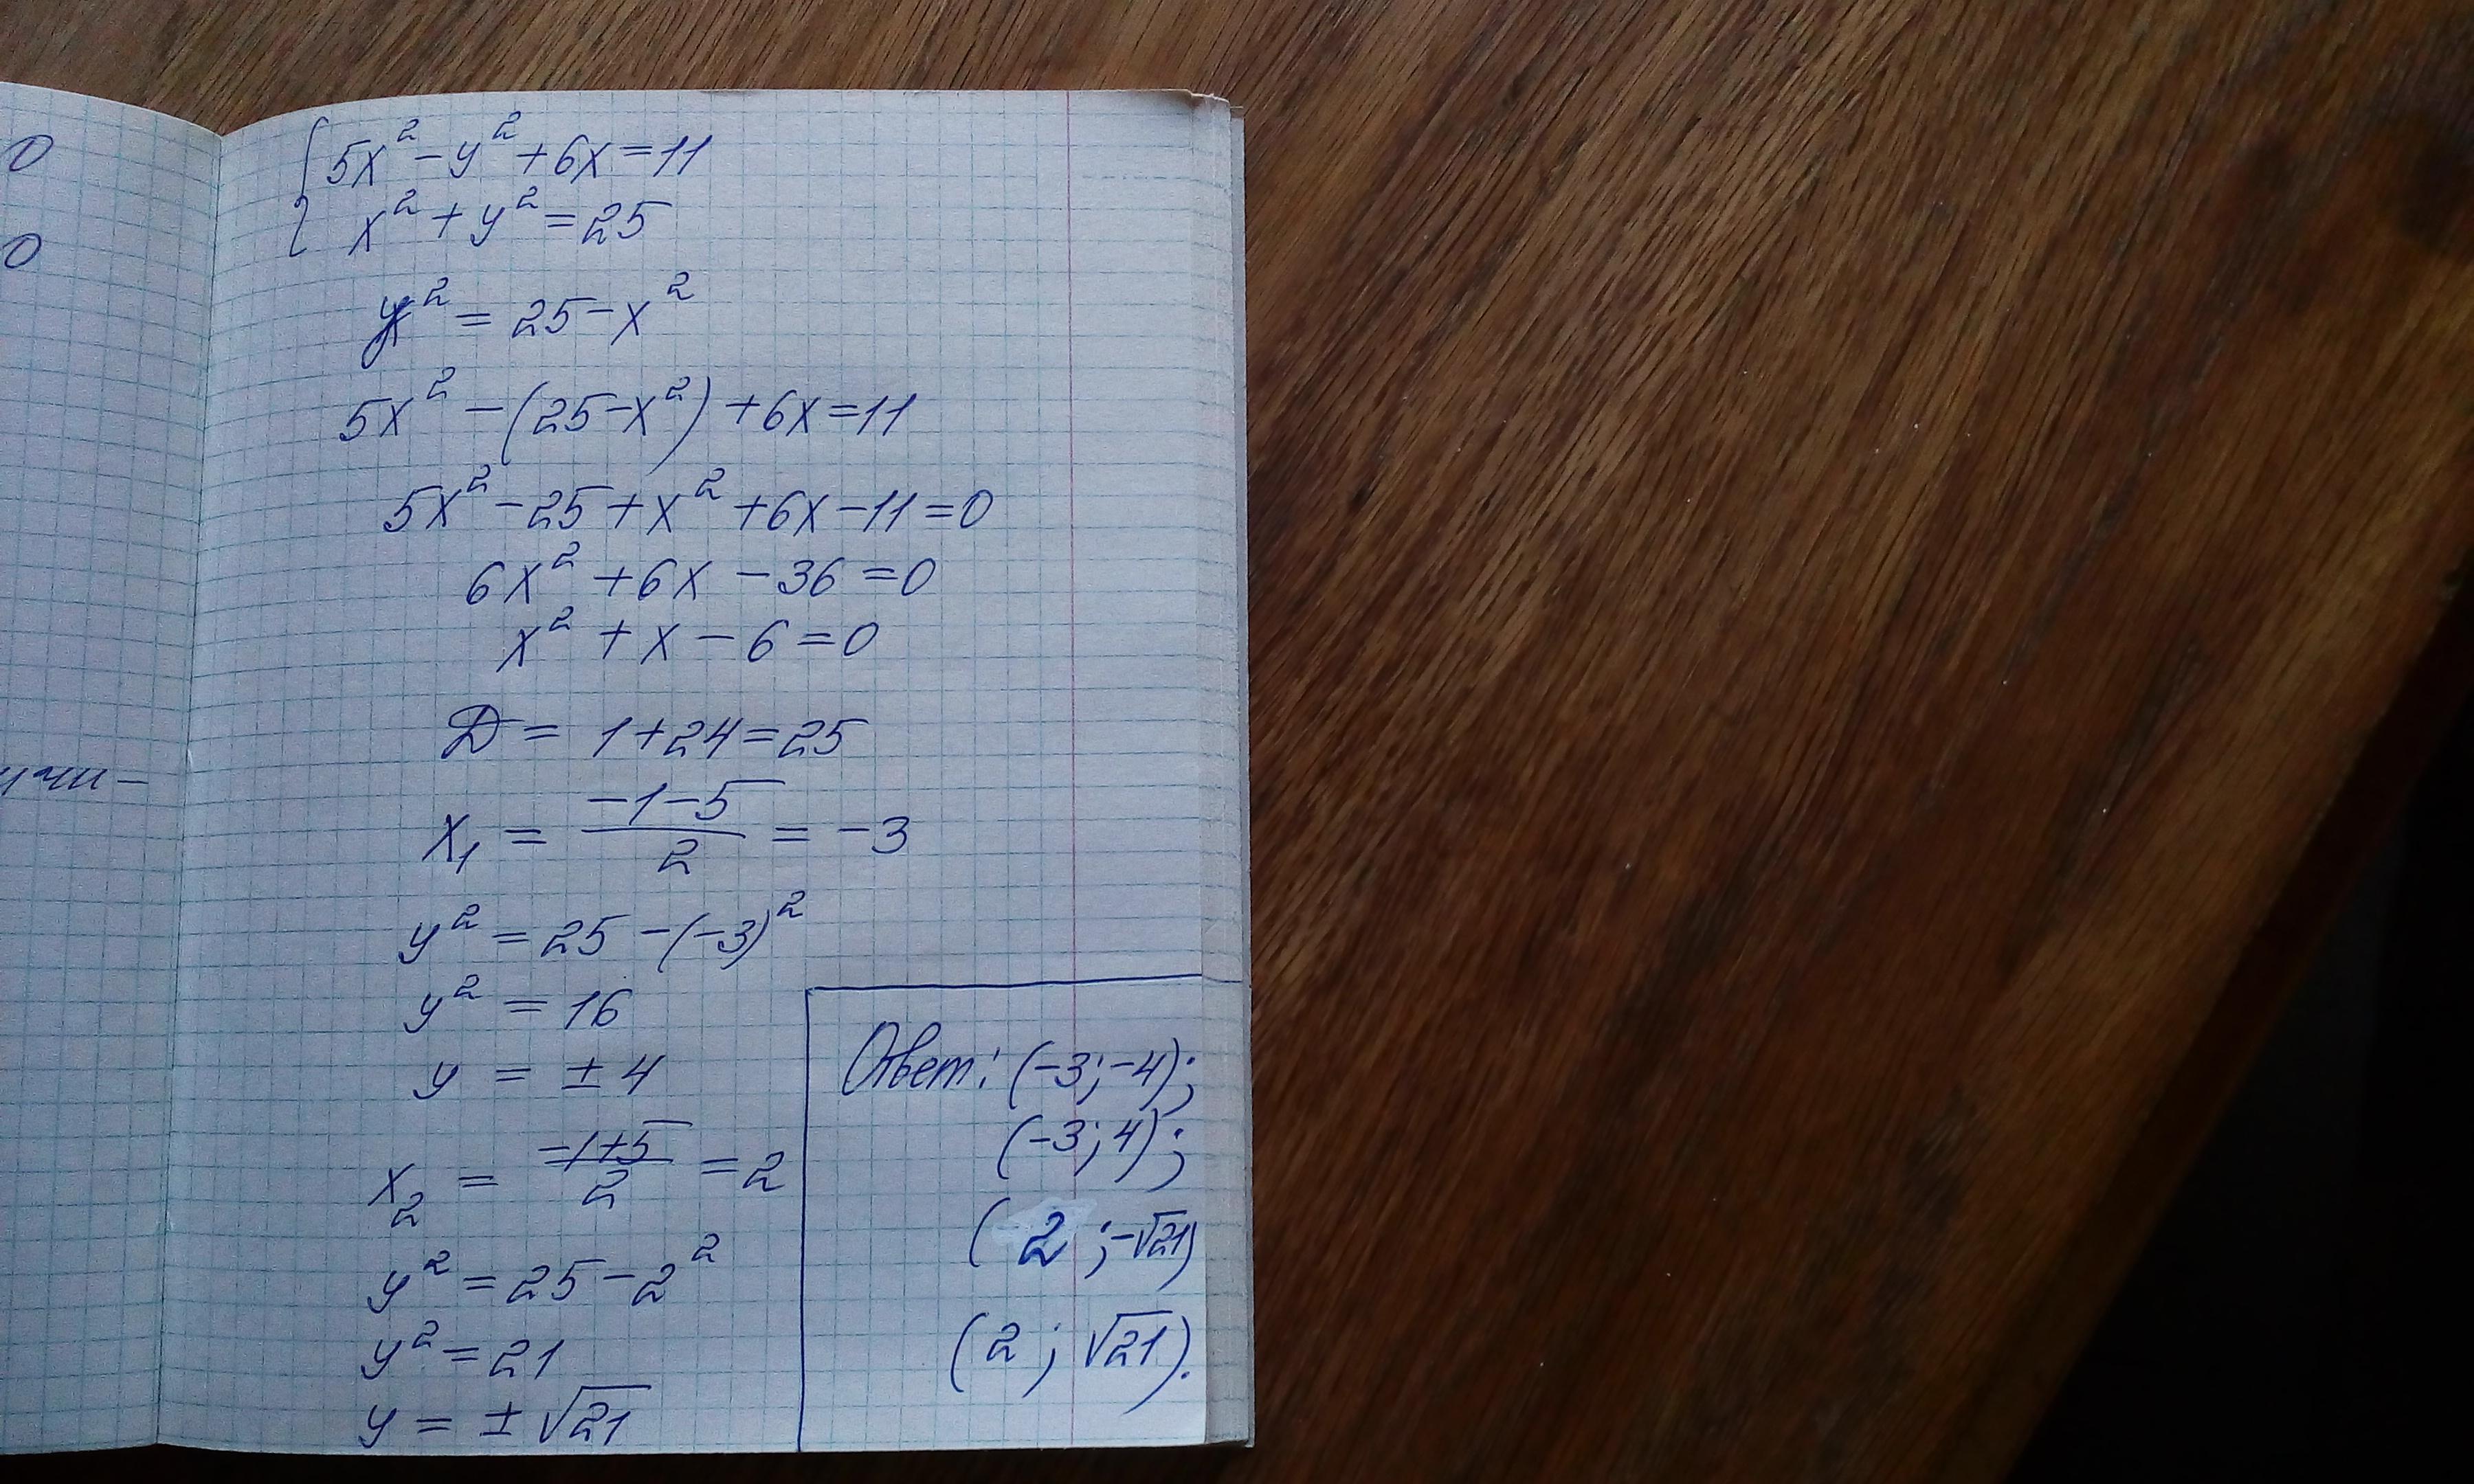 0
0
учи-
{ 5x² - y² + 6x = 11
x² + y² = 25
y² = 25 - x²
5x² - (25 - x²) + 6x = 11
5x² - 25 + x² + 6x - 11 = 0
6x² + 6x - 36 = 0
x² + x - 6 = 0
Д = 1 + 24 = 25
x₁ = (-1-5)/2 = -3
y² = 25 - (-3)²
y² = 16
y = ± 4
x₂ = (-1+5)/2 = 2
y² = 25 - 2²
y² = 21
y = ± √21
Ответ: (-3; -4);
(-3; 4);
(2; -√21)
(2; √21).